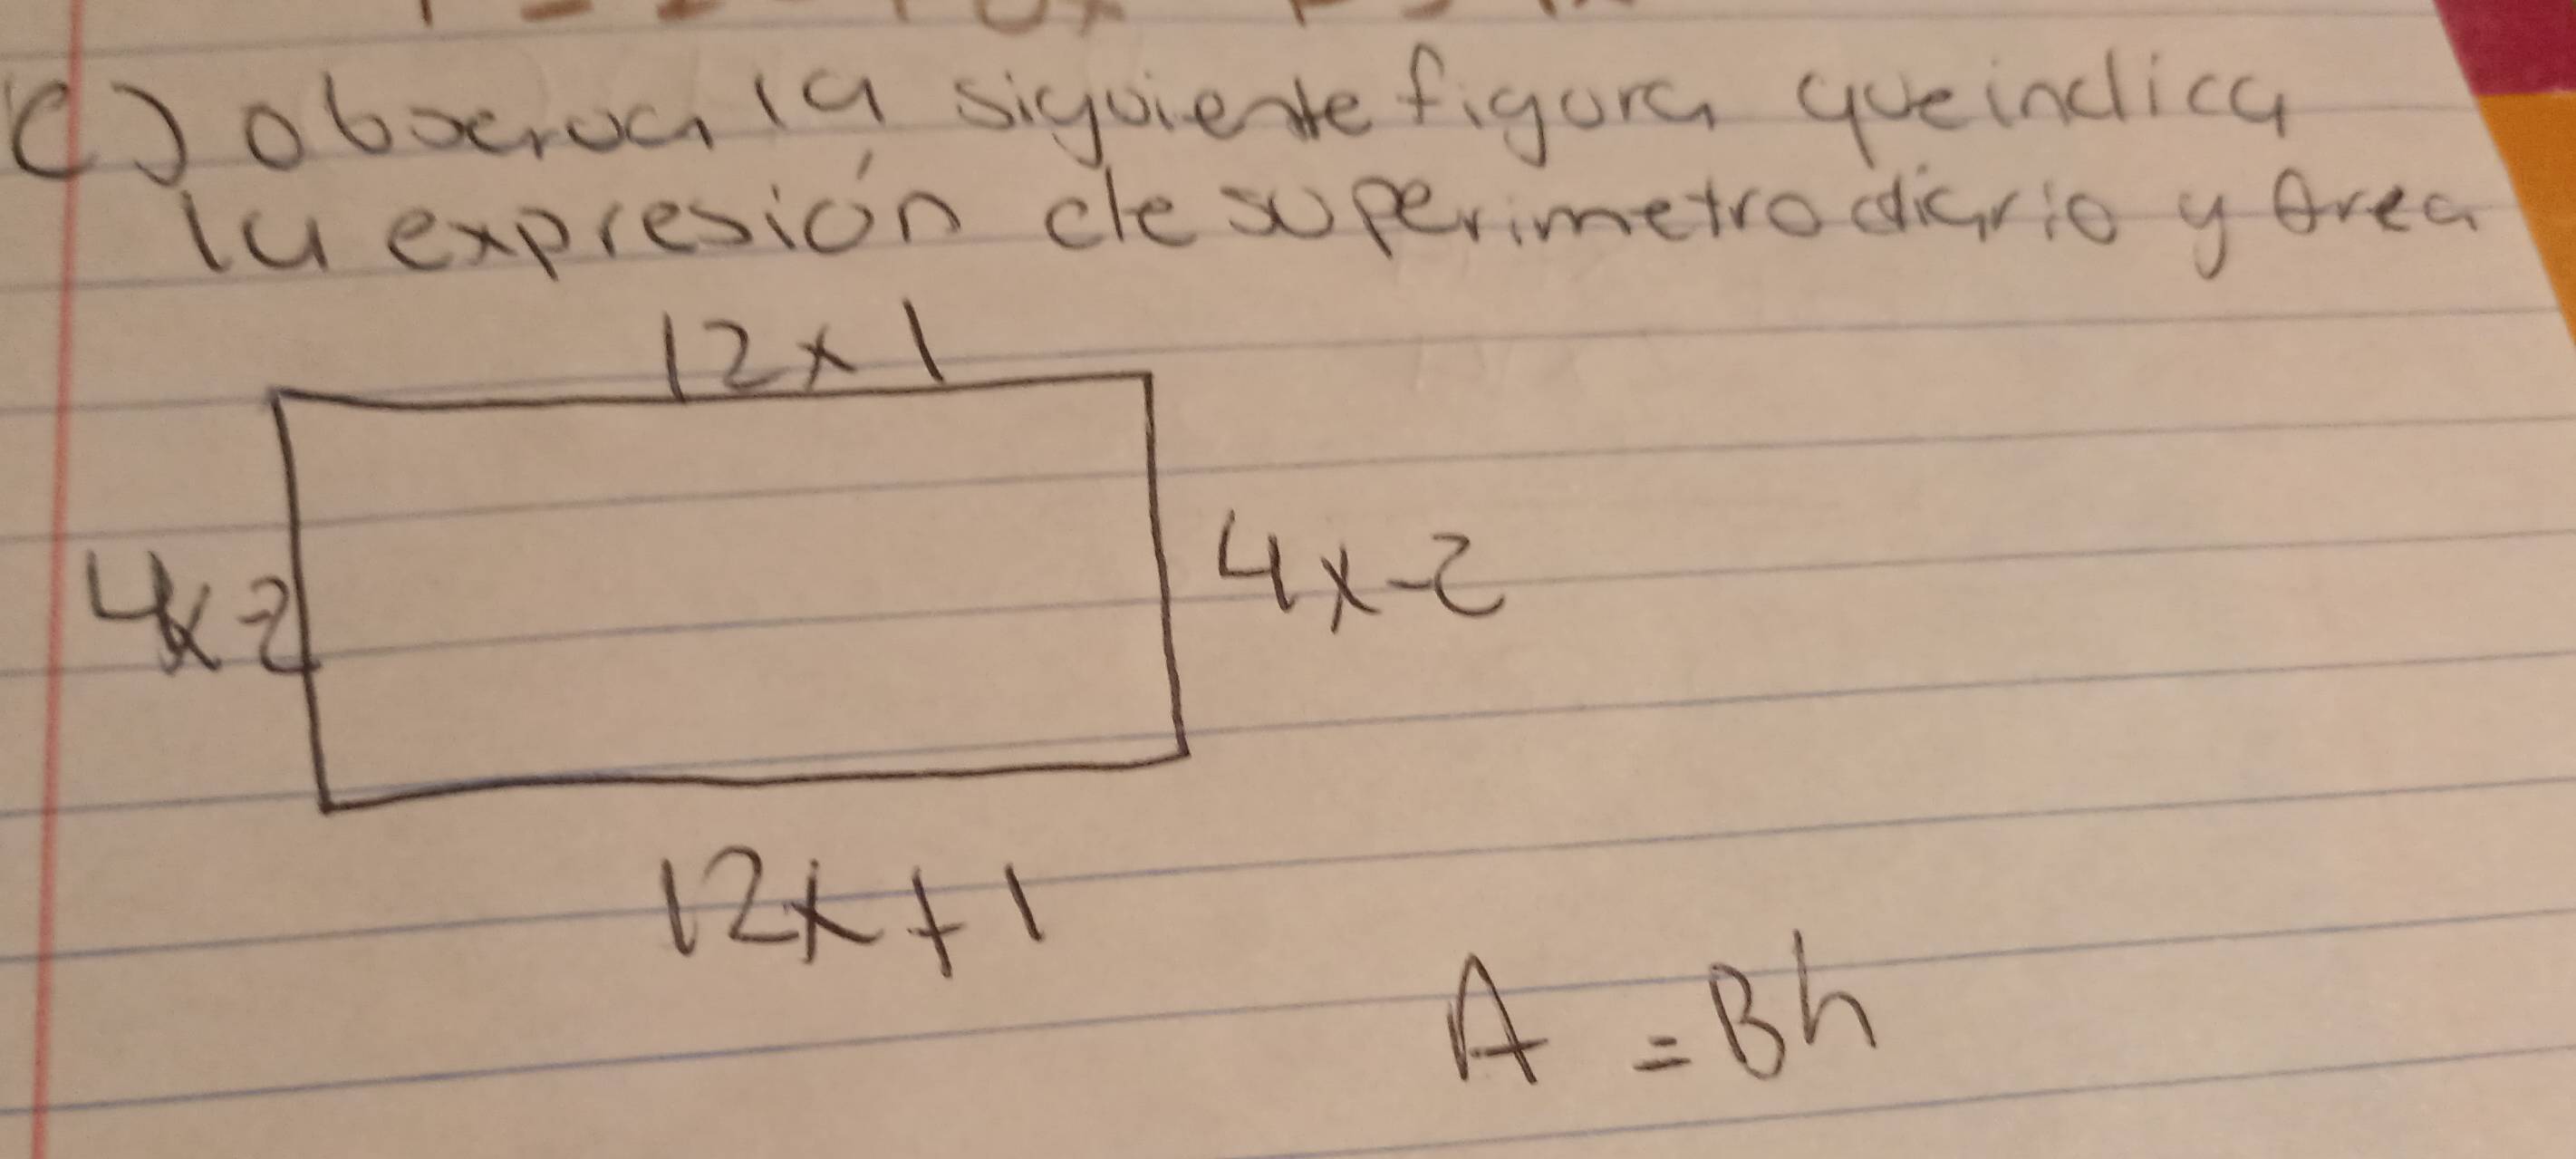 C) Observa la siguiente figura que indica
la expresión de su perimetro diario y Area
12x 1
4x-2
4x-2
12x+1
A = Bh